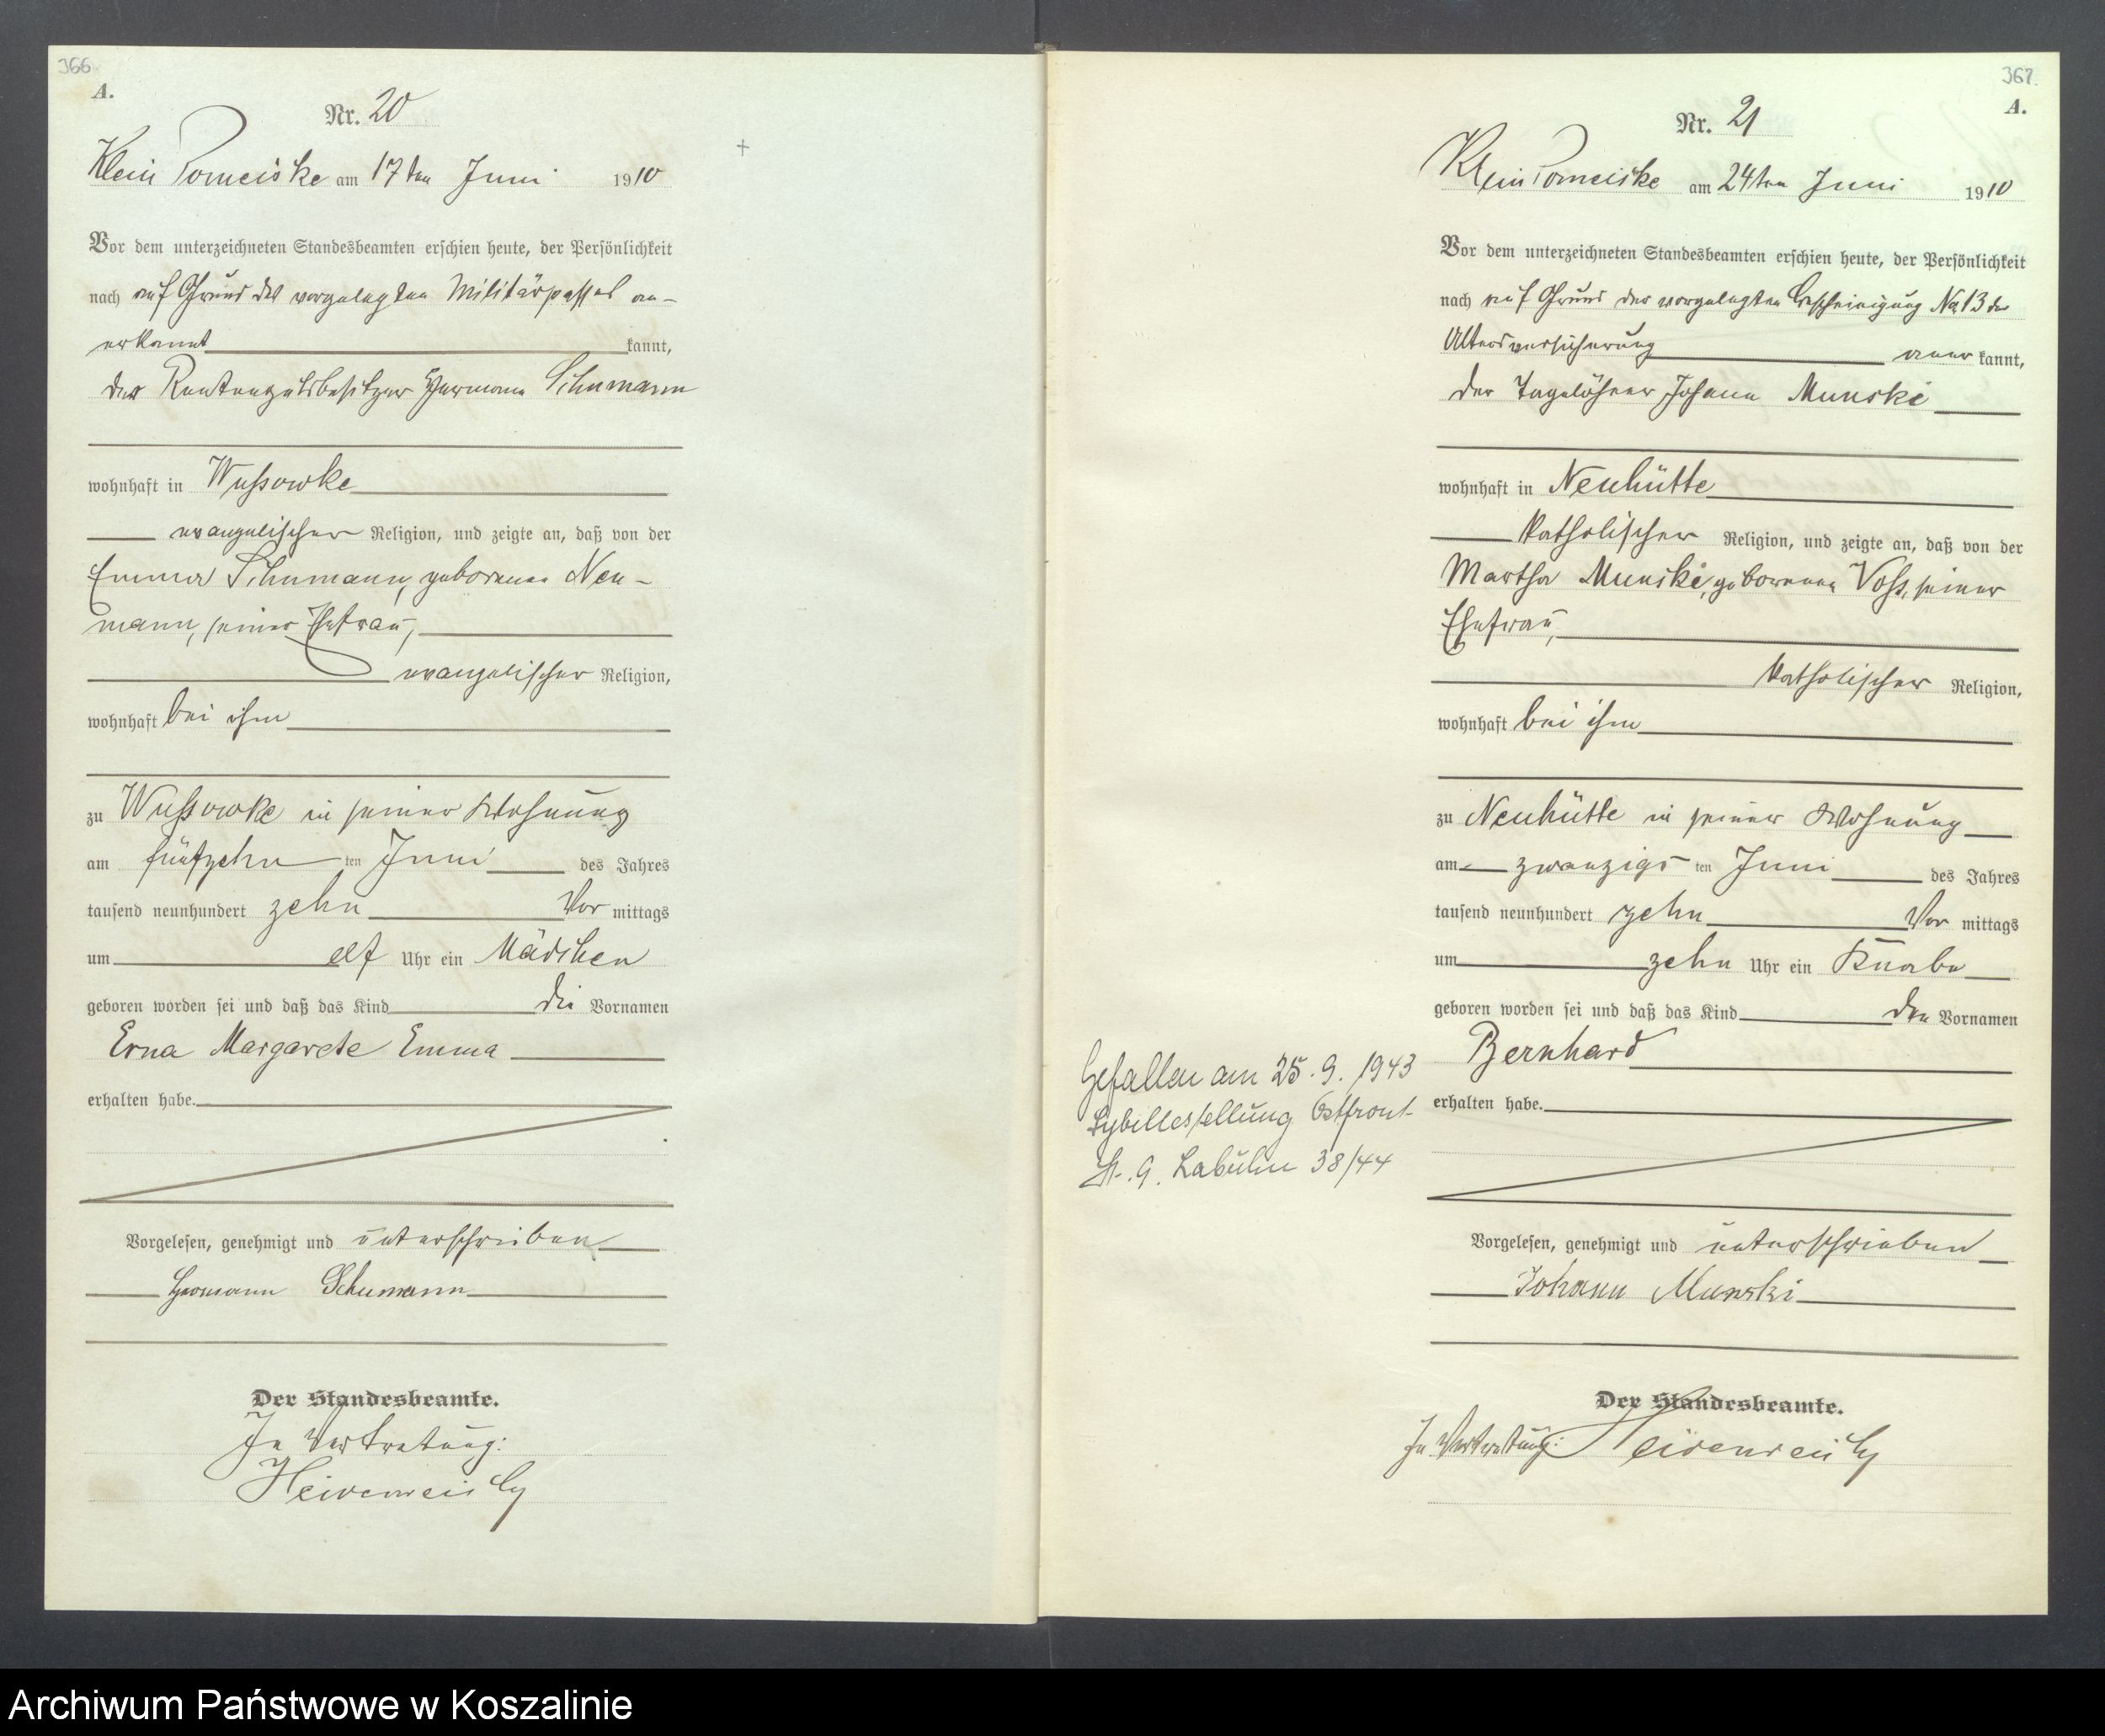 366
A.
Nr. 20
Klein Pomeiske am 17ten Juni 1910
Vor dem unterzeichneten Standesbeamten erschien heute, der Persönlichkeit
nach auf Grund des vorgelegten Militärpasses an-
erkannt kannt,
der Rentengutsbesitzer Hermann Schumann
wohnhaft in Wussowke
evangelischer Religion, und zeigte an, daß von der
Emma Schumann, geborenen Neu-
mann, seiner Ehefrau,
evangelischer Religion,
wohnhaft bei ihm
zu Wussowke in seiner Wohnung
am fünfzehn ten Juni des Jahres
tausend neunhundert zehn Vor mittags
um elf Uhr ein Mädchen
geboren worden sei und daß das Kind die Vornamen
Erna Margarete Emma
erhalten habe.
Vorgelesen, genehmigt und unterschrieben
Hermann Schumann
Der Standesbeamte.
In Vertretung:
367.
A.
Nr. 21
Klein Pomeiske am 24ten Juni 1910
Vor dem unterzeichneten Standesbeamten erschien heute, der Persönlichkeit
nach auf Grund der vorgelegten Bescheinigung No 13 der
Altersversicherung aner kannt,
der Tagelöhner Johann Munski
wohnhaft in Neuhütte
katholischer Religion, und zeigte an, daß von der
Martha Munski, geborenen Voss, seiner
Ehefrau,
katholischer Religion,
wohnhaft bei ihm
zu Neuhütte in seiner Wohnung
am zwanzigs ten Juni des Jahres
tausend neunhundert zehn Vor mittags
um zehn Uhr ein Knabe
geboren worden sei und daß das Kind den Vornamen
Bernhard
erhalten habe.
Gefallen am 25.9.1943
Sybillestellung Ostfront
St. A. Labuhn 38/44
Vorgelesen, genehmigt und unterschrieben
Johann Munski
Der Standesbeamte.
In Vertretung:
Archiwum Państwowe w Koszalinie